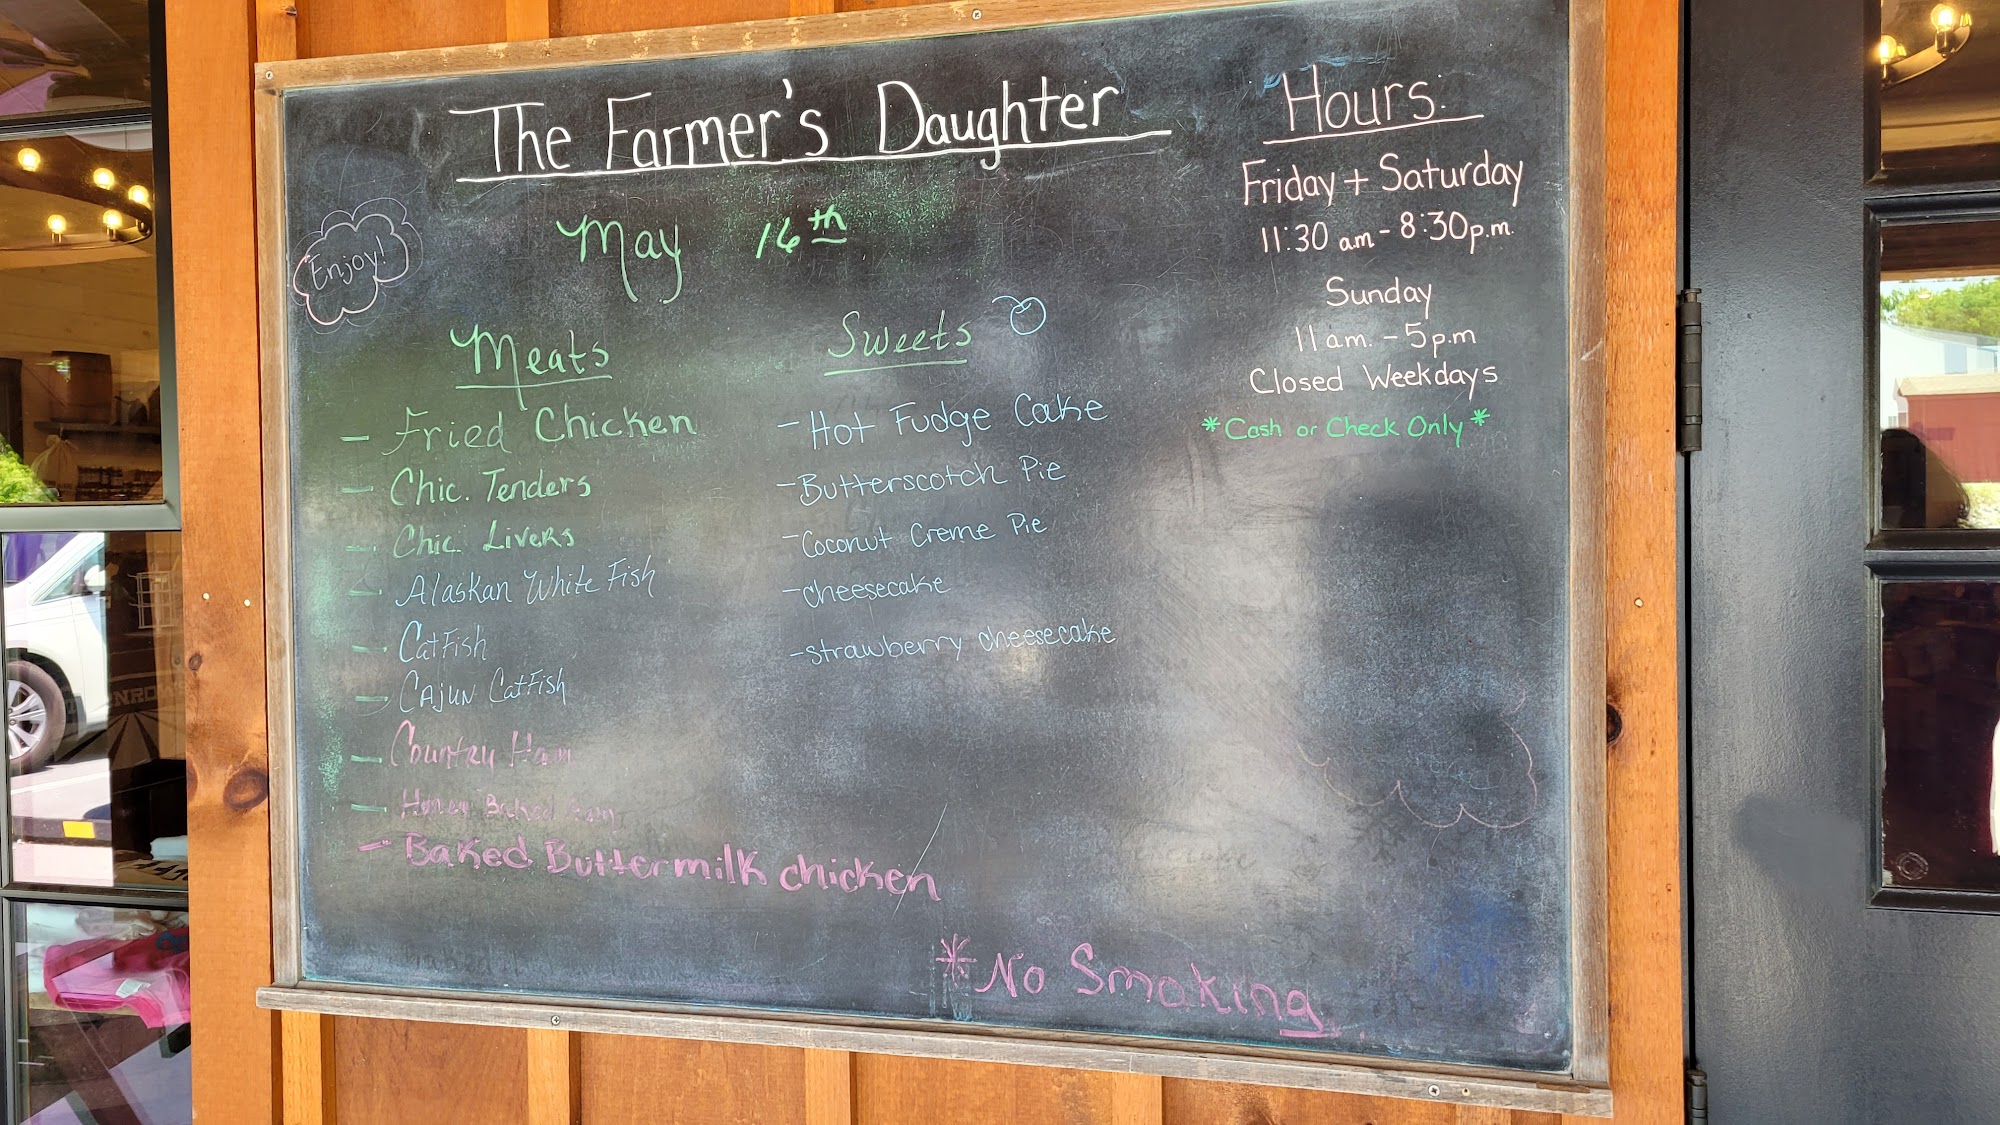 The Farmer's Daughter
May 16th
Enjoy!
Meats
- Fried Chicken
- Chic. Tenders
- Chic. Livers
- Alaskan White Fish
- CatFish
- Cajun CatFish
- Country Ham
- Honey Baked Ham
- Baked Buttermilk chicken
Sweets
- Hot Fudge Cake
- Butterscotch Pie
- Coconut Creme Pie
- cheesecake
- strawberry cheesecake
Hours:
Friday + Saturday
11:30 am - 8:30 p.m.
Sunday
11 am. - 5 p.m
Closed Weekdays
* Cash or Check Only *
* No Smoking